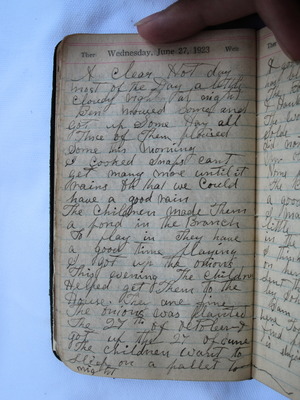 Ther Wednesday, June 27, 1923 Wea
A Clear Hot day
most of the Day a little
Cloudy
Gent mowed Some and
Got up Some Hay all
Three of Them plowed
Some this morning
I cooked snaps cant
get many more until it
Rains Oh that we Could
have a good rain
The Children made Them
a pond in the Branch
To play in They have
a good time playing
I got up the onions
This evening The Children
Helped get Them to the
House They are fine
The onions was planted
The 27th of October I
got up the 27 of June
The children want to
Sleep on a pallet to
night